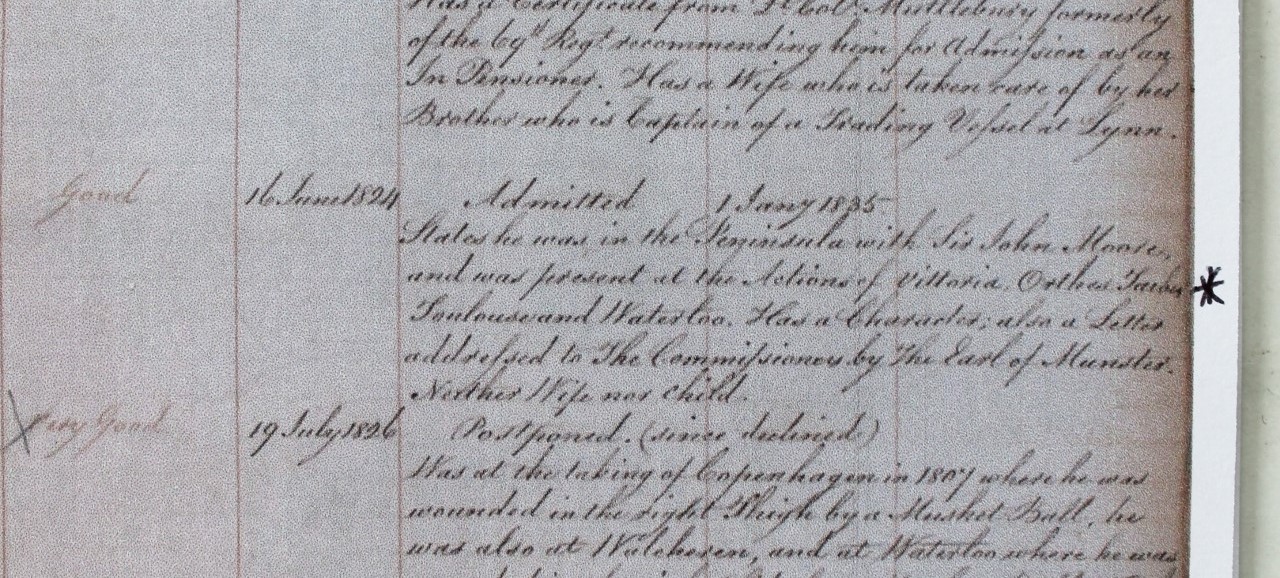 Has a Certificate from Lt. Col. Muttlebury formerly
of the 69th Regt. recommending him for Admission as an
In Pensioner. Has a Wife who is taken care of by her
Brother who is Captain of a Trading Vessel at Lynn.
Good 16 June 1824 Admitted 1 Jany 1835
States he was in the Peninsula with Sir John Moore,
and was present at the Actions of Vittoria, Orthes Tarbes
Toulouse and Waterloo. Has a Character; also a Letter
addressed to The Commissioners by The Earl of Munster.
Neither Wife nor Child.
Very Good 19 July 1826 Postponed. (since declined)
Was at the taking of Copenhagen in 1807 where he was
wounded in the right Thigh by a Musket Ball, he
was also at Walcheren, and at Waterloo where he was